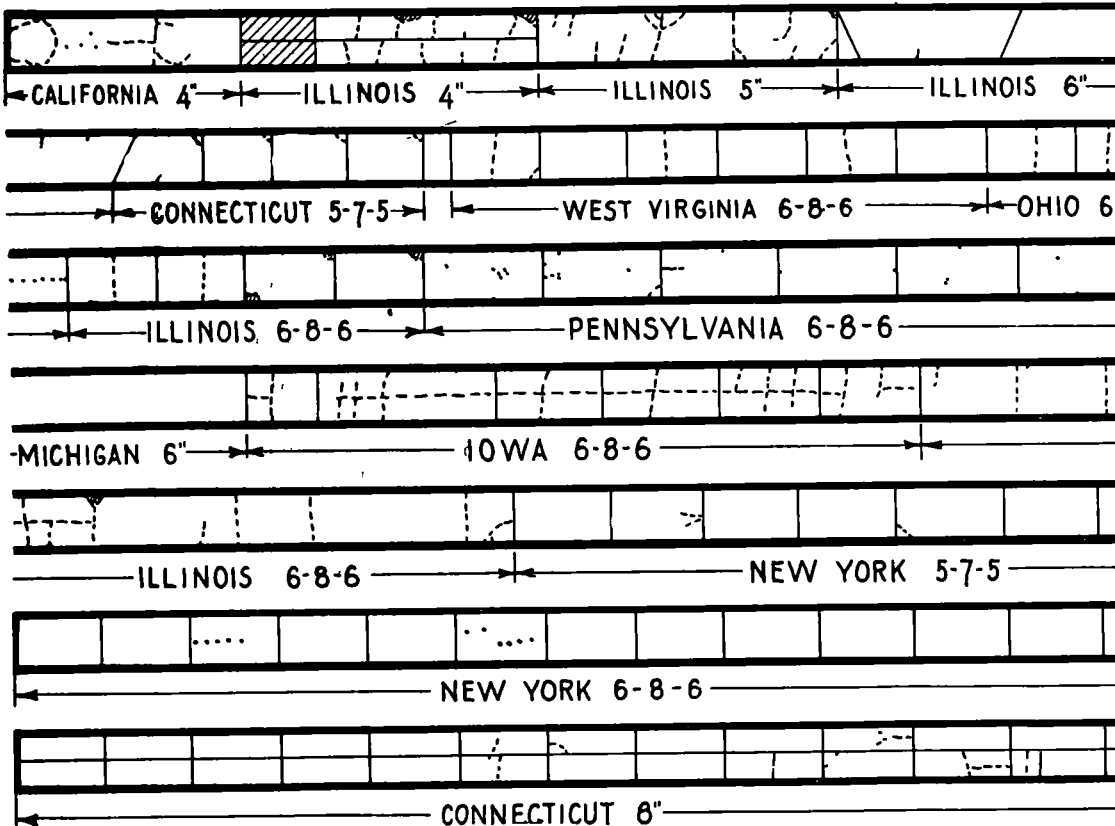 CALIFORNIA 4" ILLINOIS 4" ILLINOIS 5" ILLINOIS 6"
CONNECTICUT 5-7-5 WEST VIRGINIA 6-8-6 OHIO 6
ILLINOIS 6-8-6 PENNSYLVANIA 6-8-6
MICHIGAN 6" IOWA 6-8-6
ILLINOIS 6-8-6 NEW YORK 5-7-5
NEW YORK 6-8-6
CONNECTICUT 8"